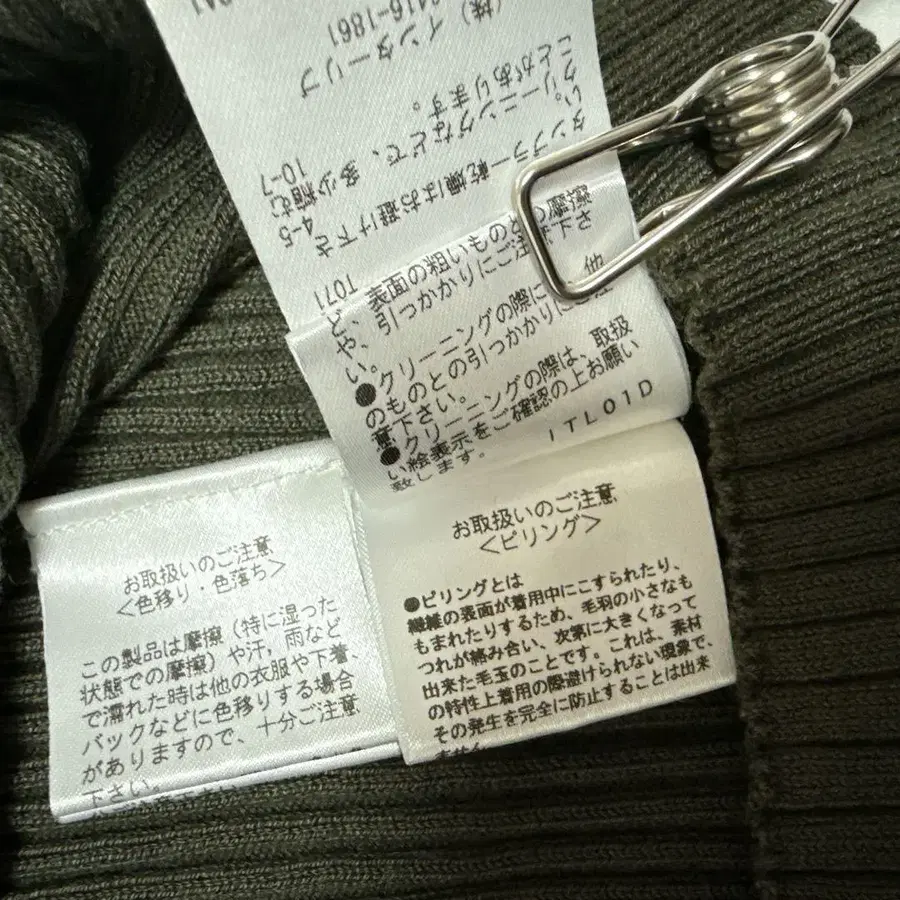 タンブラー乾燥はお避け下さ
い。
クリーニングなどで、多少縮む
ことがあります。
(株) インターリブ
T071
4-5
10-7
ど、表面の粗いものとの摩擦
や、引っかかりにご注意下さ
い。
●クリーニングの際に 他
のものとの引っかかりにご注
意下さい。
●クリーニングの際は、取扱
い絵表示をご確認の上お願い
致します。
ITL01D
お取扱いのご注意
<ピリング>
●ピリングとは
繊維の表面が着用中にこすられたり、
もまれたりするため、毛羽の小さなも
つれが絡み合い、次第に大きくなって
出来た毛玉のことです。これは、素材
の特性上着用の際避けられない現象で、
その発生を完全に防止することは出来
ません
お取扱いのご注意
<色移り・色落ち>
この製品は摩擦（特に湿った
状態での摩擦）や汗，雨など
で濡れた時は他の衣服や下着、
バックなどに色移りする場合
がありますので、十分ご注意
下さい。